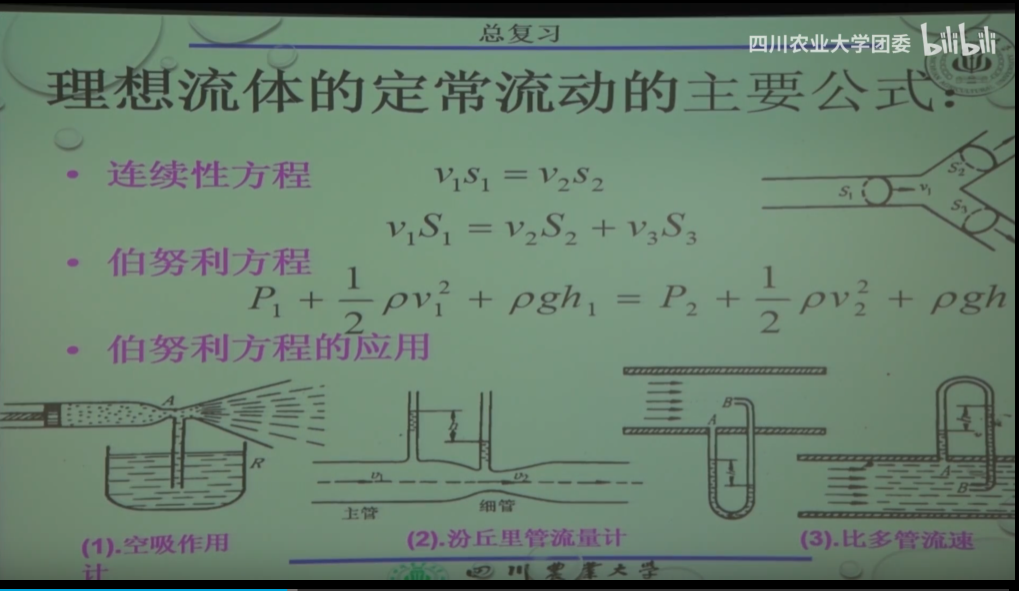 总复习
四川农业大学团委 bilibili
理想流体的定常流动的主要公式:
• 连续性方程
v₁s₁ = v₂s₂
v₁S₁ = v₂S₂ + v₃S₃
S₁ v₁ S₂ S₃
• 伯努利方程
P₁ + 1/2 ρv₁² + ρgh₁ = P₂ + 1/2 ρv₂² + ρgh
• 伯努利方程的应用
A R
h v₁ v₂
主管 细管
A B
A B
(1).空吸作用
计
(2).汾丘里管流量计
(3).比多管流速
四川农业大学